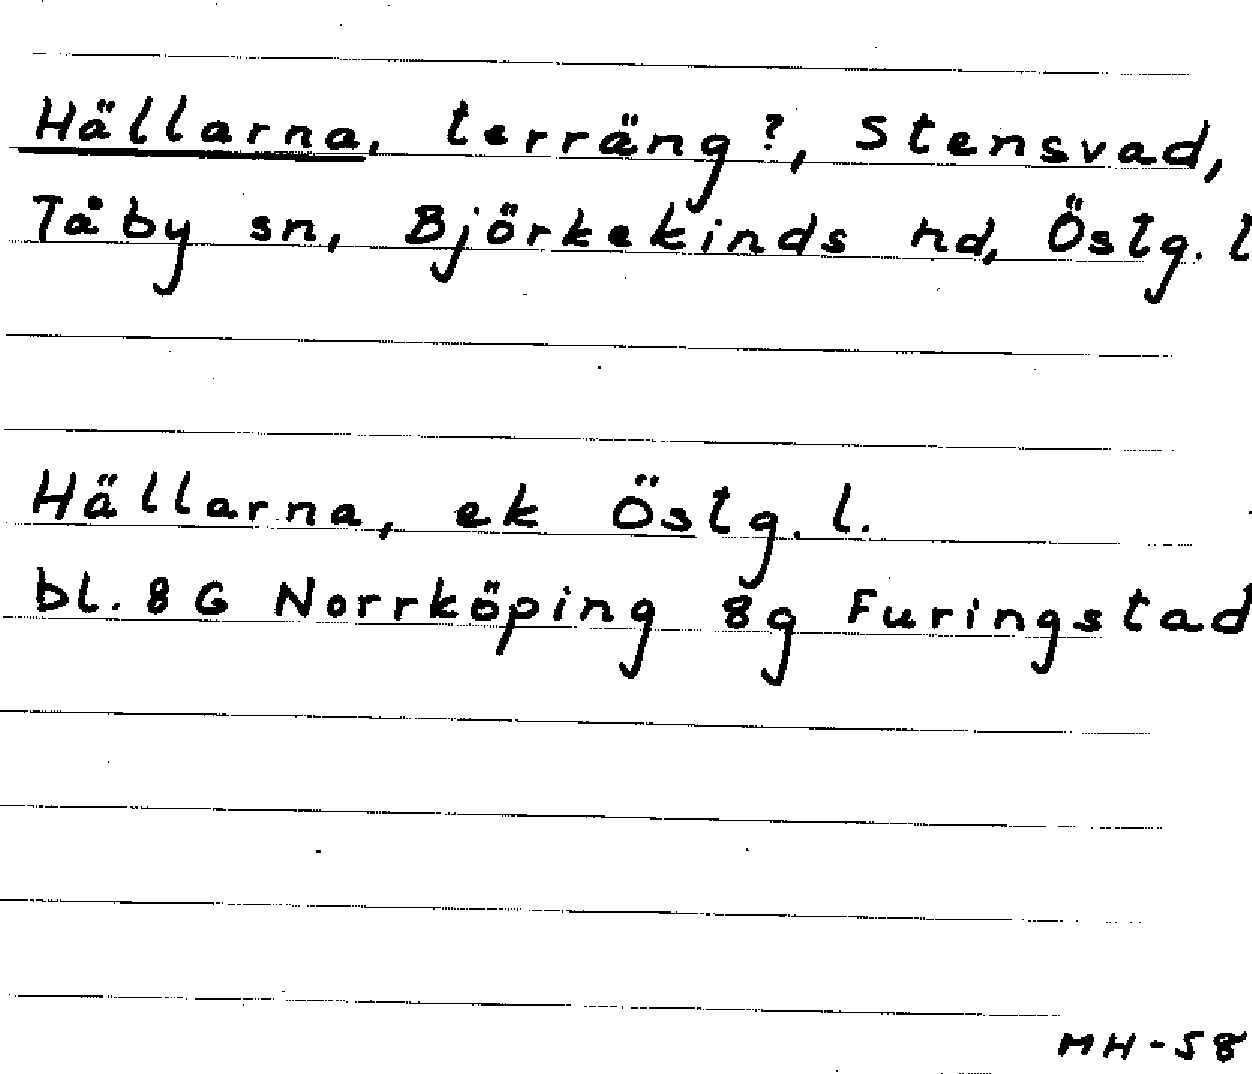 Hällarna, terräng?, Stensvad,
Tåby sn, Björkekinds hd, Östg. l
Hällarna, ek Östg. l.
bl. 8 G Norrköping 8g Furingstad
MH-58